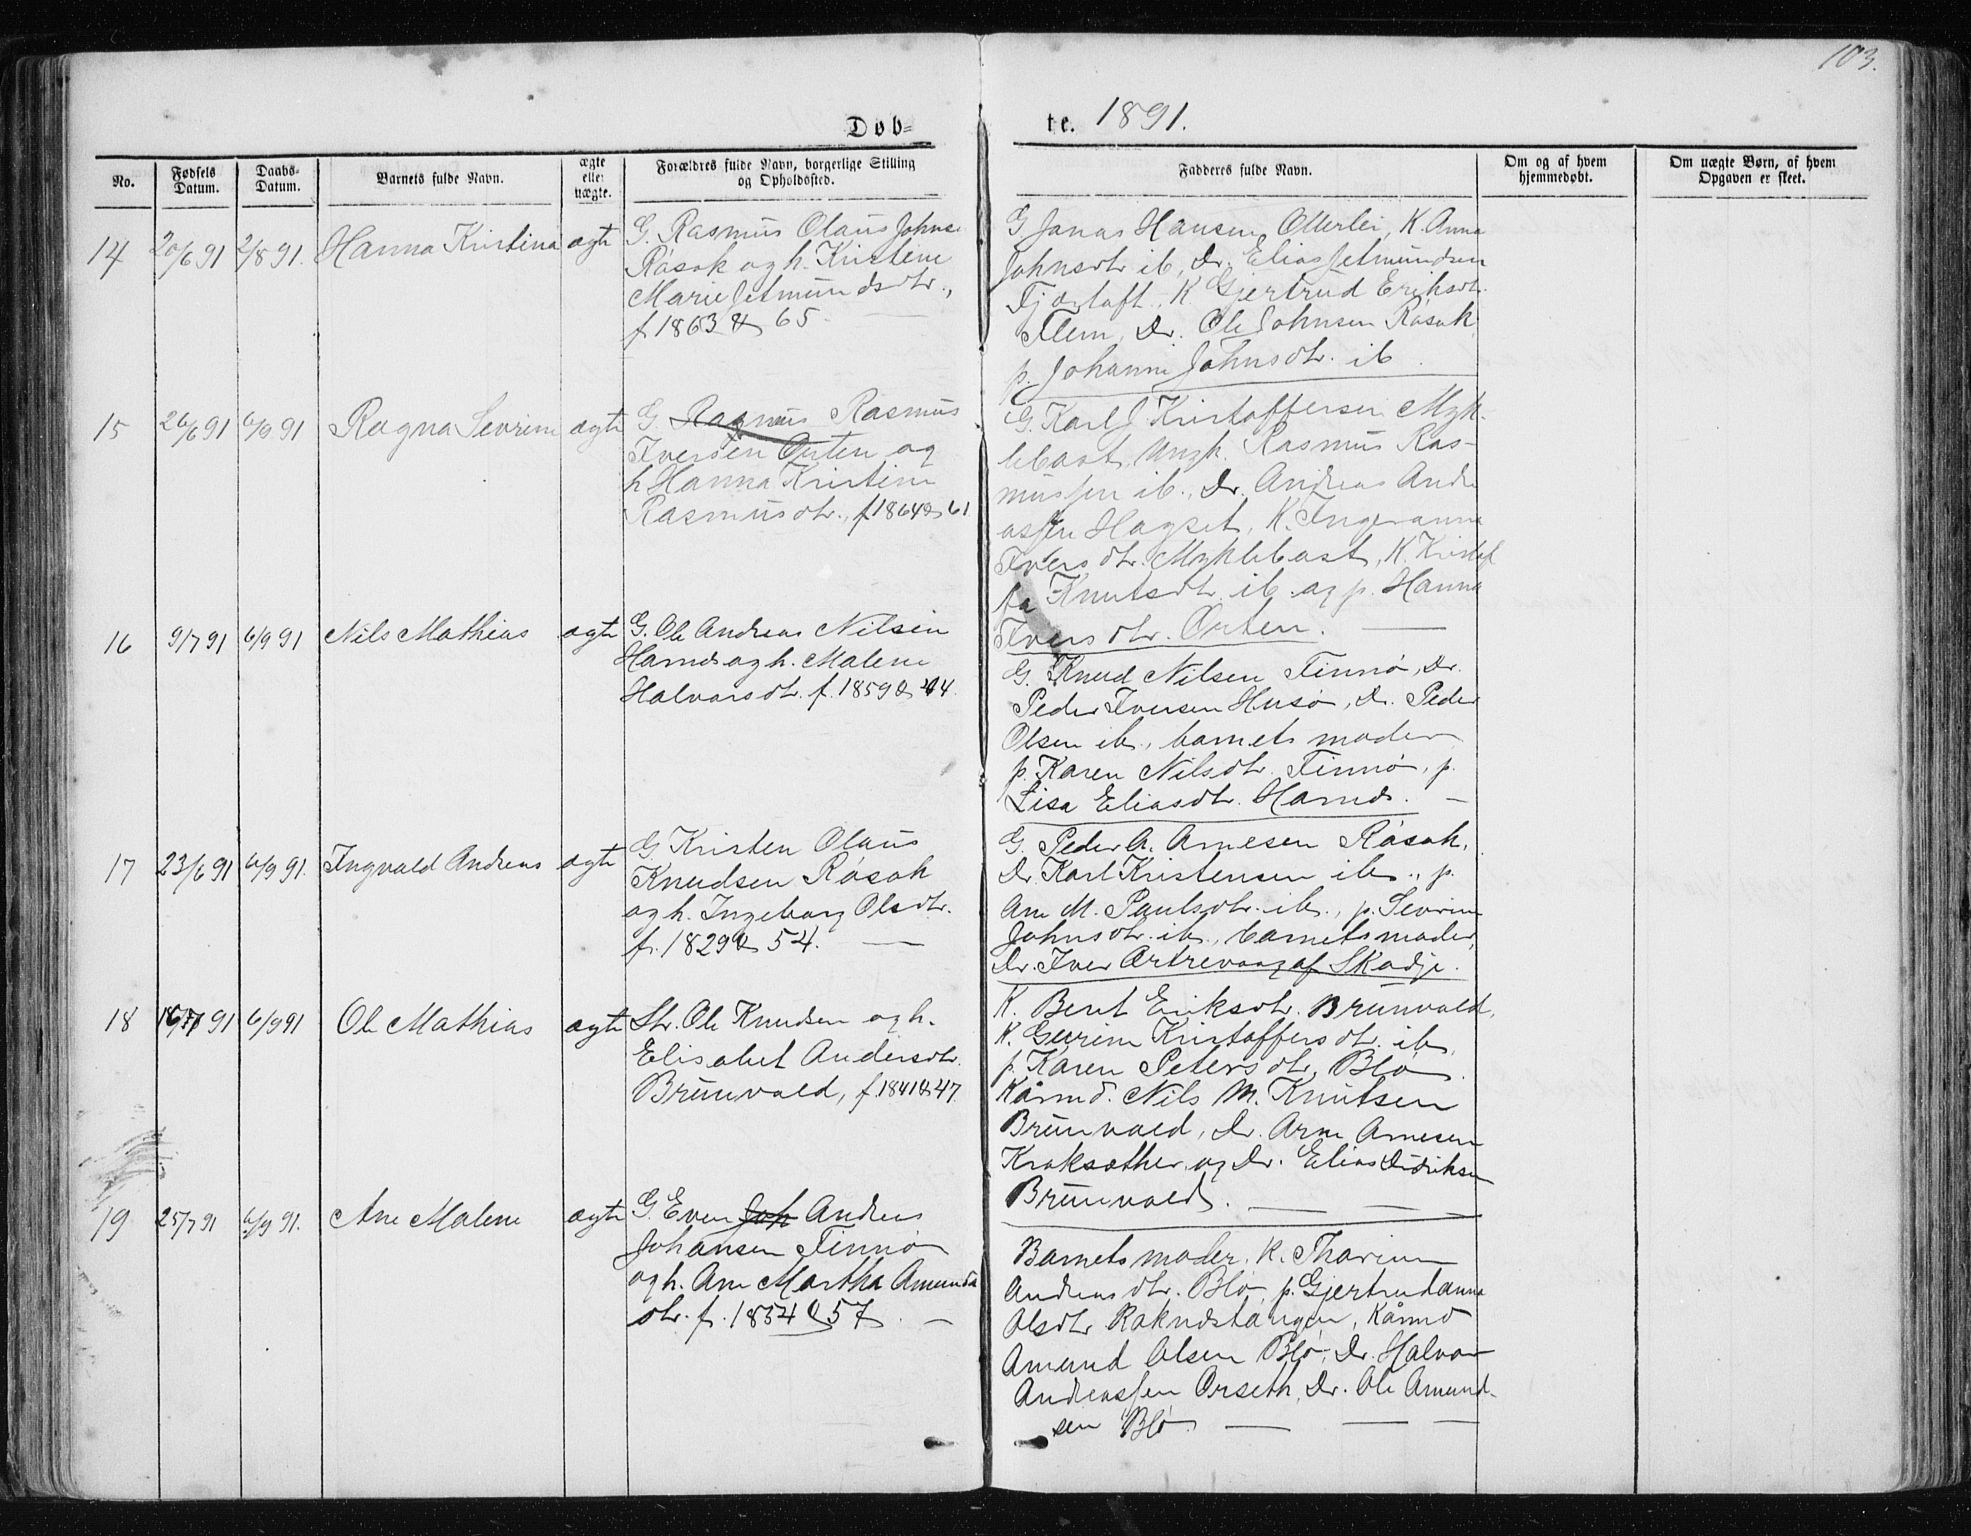 103.
Døb= te. 1891.
No. Fødsels Datum. Daabs- Datum. Barnets fulde Navn. ægte eller uægte. Forældres fulde Navn, borgerlige Stilling og Opholdssted. Fadderes fulde Navn. Om og af hvem hjemmedøbt. Om uægte Børn, af hvem Opgaven er skeet.
14 20/6 91 2/8 91. Hanna Kristina ægte
G. Rasmus Olaus Johns.
Røsok og h. Kristine
Marie Jetmundsdtr.,
f 1863 & 65
G. Jonas Hansen Otterlei, K. Anna
Johnsdtr ib, Dr. Elias Jetmundsen
Fjørtoft, K Gjertrud Eriksdtr.
Flem, Dr. Ole Johnsen Røsok,
p. Johanne Johnsdtr. ib.
15 26/6 91 6/9 91 Ragna Sevrine ægte
G. Ragnus Rasmus
Iversen Orten og
h Hanna Kristine
Rasmusdtr., f 1864 & 61
G. Karl J Kristoffersen Myk-
lebost, Ungk. Rasmus Ras-
mussen ib., Dr. Andreas Andre
assen Hagset, K. Ingeranna
Iversdtr. Myklebost, K. Kristof
fa Knutsdtr. ib. og p. Hanna
Iversdtr. Orten.
16 9/7 91 6/9 91 Nils Mathias ægte
G. Ole Andreas Nilsen
Harnds og h. Malene
Halvorsdtr. f. 1859 & 44.
G. Knud Nilsen Finnø, Dr.
Peder Iversen Husø, Dr. Peder
Olsen ib., barnets moder
p. Karen Nilsdtr. Finnø, p.
Lisa Eliasdtr. Harnds.
17 23/6 91 6/9 91. Ingvald Andreas ægte
G. Kristen Olaus
Knudsen Røsok
og h. Ingeborg Olsdtr.
f. 1829 & 54.
G. Peder A. Arnesen Røsok,
Dr. Karl Kristensen ib., p.
Ane M. Paulsdtr. ib., p. Sevrine
Johnsdtr. ib., barnets moder,
Dr. Iver Ørtrevaag af Skodje.
18 91 6/9 91 Ole Mathias ægte
Str. Ole Knudsen og h.
Elisabet Andersdtr.
Brunvold, f. 1841 & 47.
K. Berit Eriksdtr. Brunvold,
K. Gurine Kristoffersdtr. ib,
p. Karen Petersdtr, Blø
Kårmd. Nils M. Knutsen
Brunvold, Dr. Arne Arnesen
Kroksæther og Dr. Elias Didriksen
Brunvold.
19 25/7 91 6/9 91. Ane Malene ægte
G. Even Joh Andreas
Johansen Finnø
og h. Ane Martha Amunds
dtr. f. 1854 & 57.
Barnets moder. K. Tharine
Andreasdtr. Blø, p. Gjertrudanna
Olsdtr Rakndstangen, Kårmd
Amund Olsen Blø, Dr. Halvor
Andreassen Orseth, Dr. Ole Amund-
sen Blø